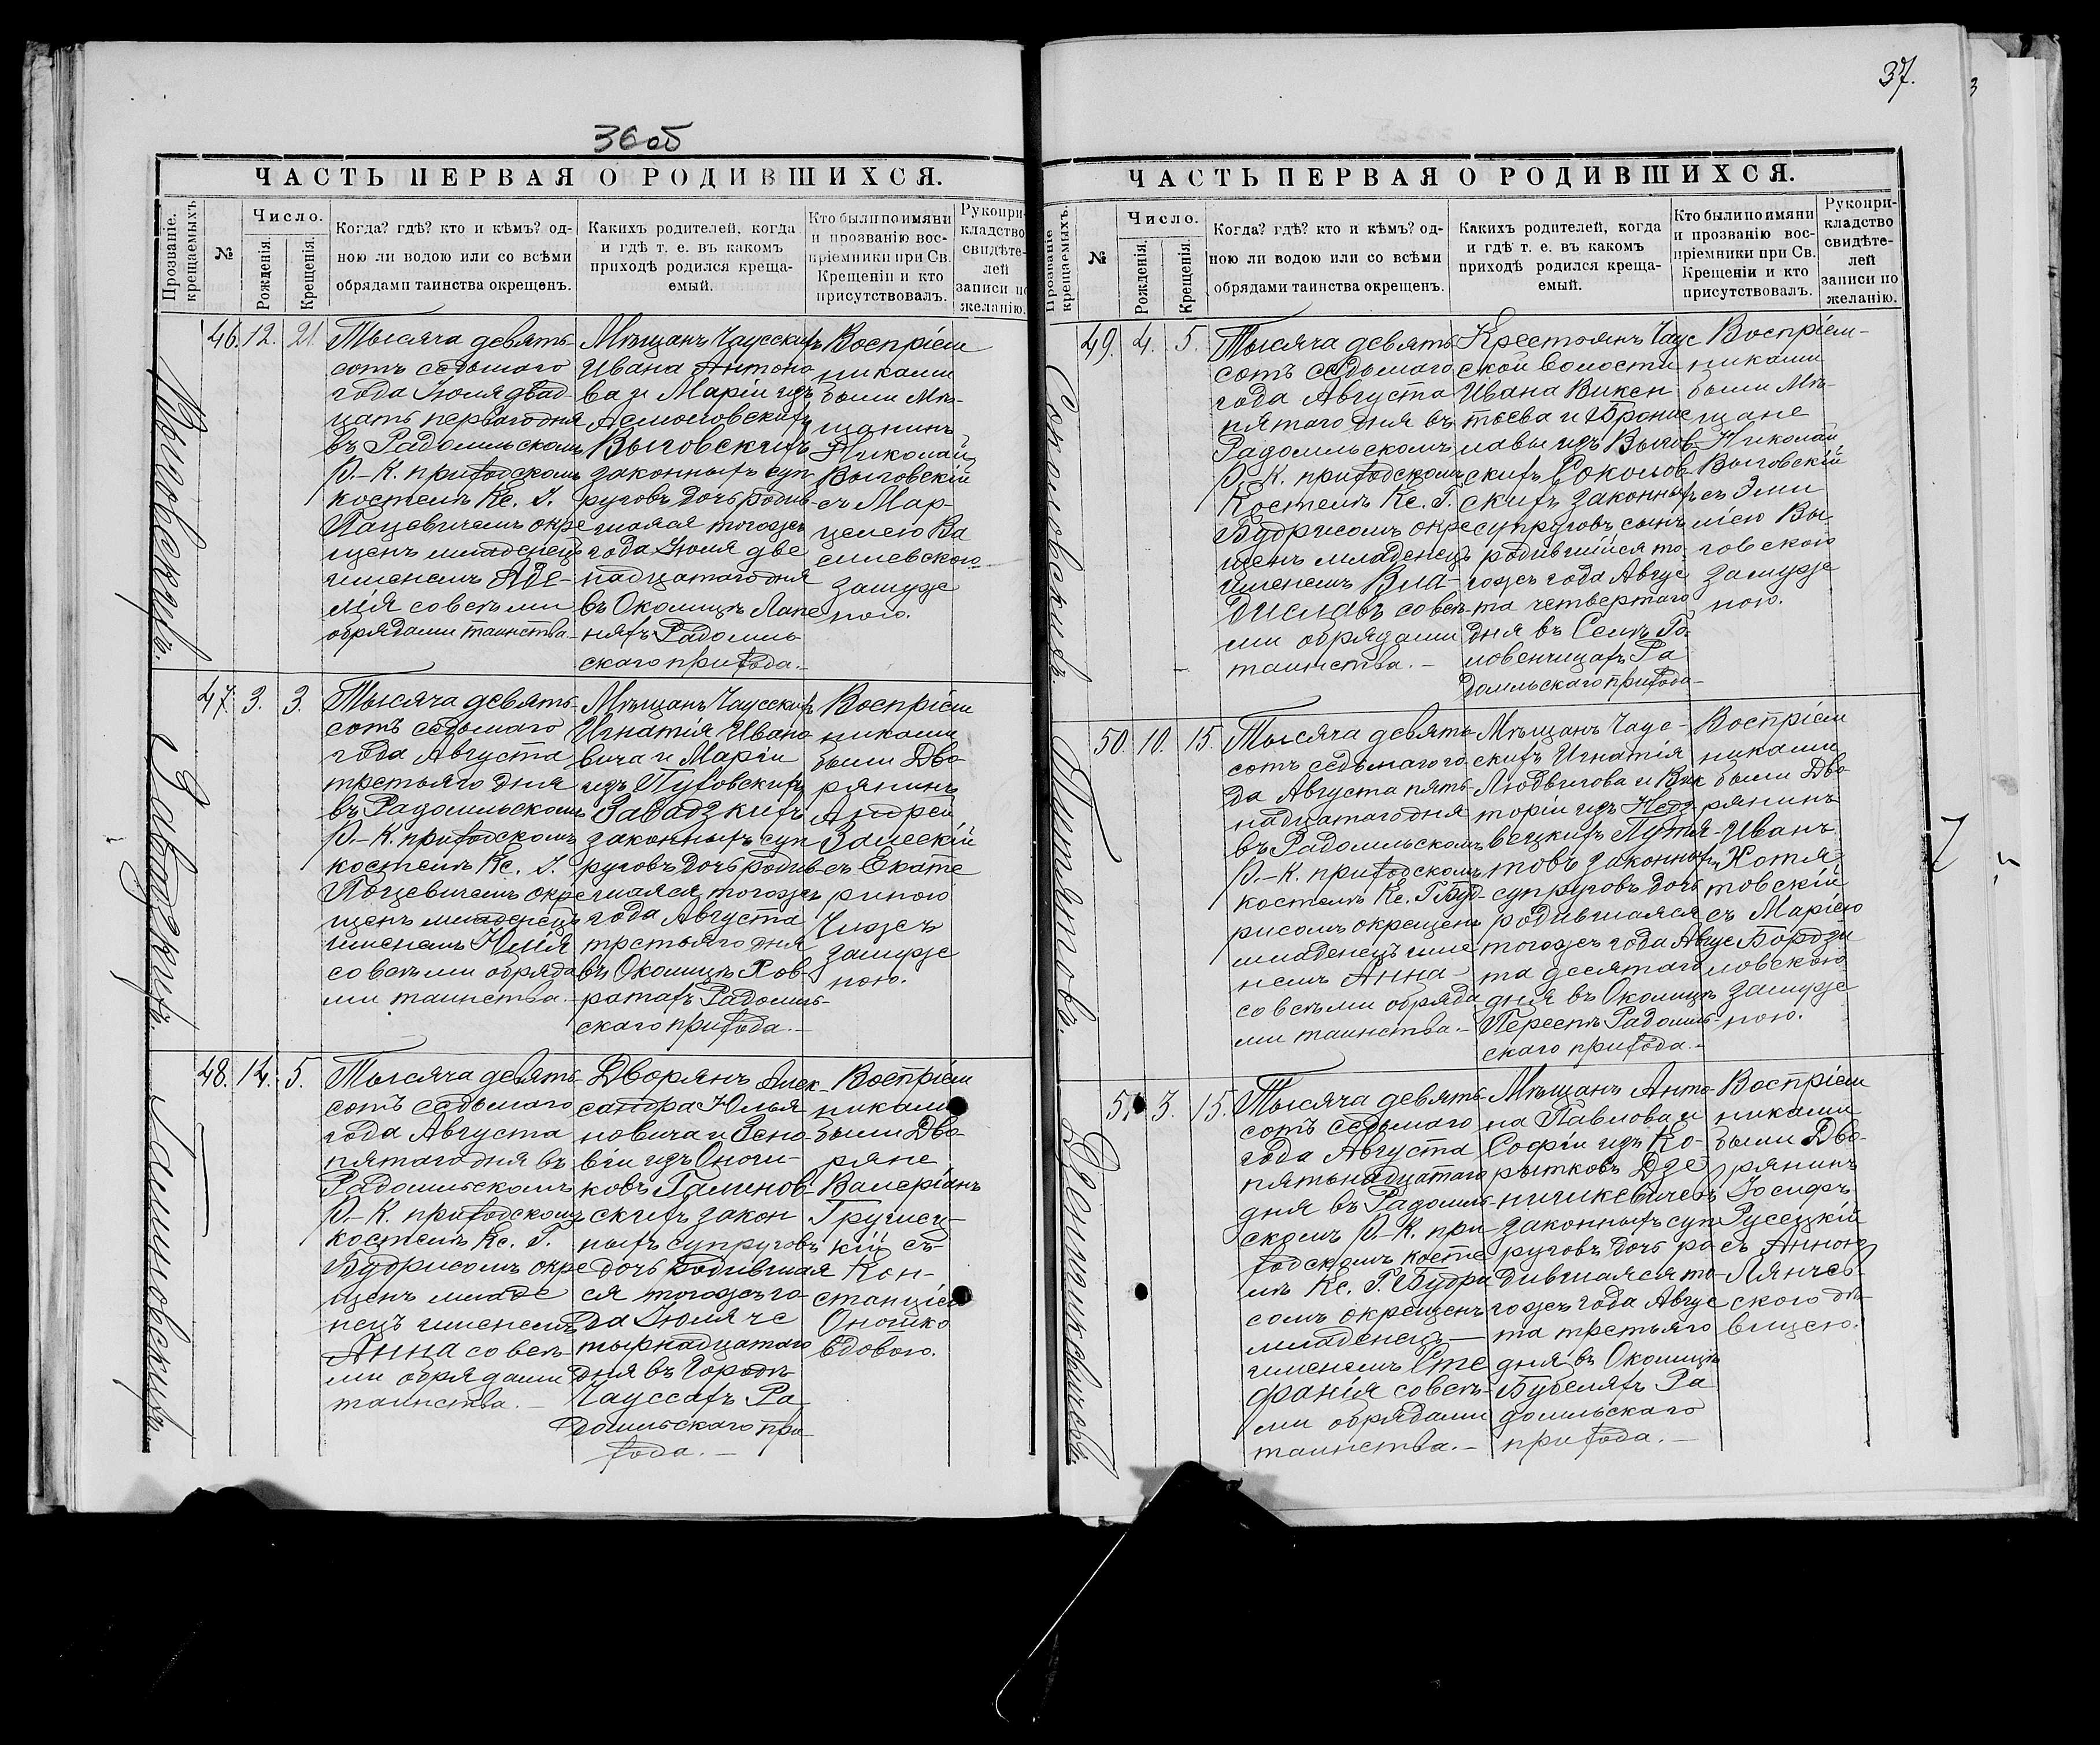 36 об
ЧАСТЬ ПЕРВАЯ О РОДИВШИХСЯ.
Прозваніе крещаемыхъ.
№
Число.
Рожденія.
Крещенія.
Когда? гдѣ? кто и кѣмъ? од-
ною ли водою или со всѣми
обрядами таинства окрещенъ.
Какихъ родителей, когда
и гдѣ т. е. въ какомъ
приходѣ родился креща-
емый.
Кто были по имяни
и прозванію вос-
пріемники при Св.
Крещеніи и кто
присутствовалъ.
Рукопри-
кладство
свидѣте-
лей
записи по
желанію.
Выговскихъ.
46. 12. 21.
Тысяча девять-
сотъ седьмаго
года Іюля двад-
цать перваго дня
въ Радомльскомъ
Р.-К. приходскомъ
костелѣ Кс. І.
Пацевичемъ окре
щенъ младенецъ
именемъ Аде-
лія со всѣми
обрядами таинства.-
Мѣщанъ Чаусскихъ
Ивана Антоно
ва и Маріи изъ
Асмоловскихъ
Выговскихъ
законныхъ суп
руговъ дочь родив-
шаяся тогожъ
года Іюля две
надцатаго дня
въ Околицѣ Лапе
няхъ Радомль
скаго прихода.-
Воспріем
никами
были Мѣ-
щанинъ
Николай
Выговскій
съ Мар-
целею Ва
силевскою
замуже
ною.
Завадзкихъ.
47. 3. 3.
Тысяча девять-
сотъ седьмаго
года Августа
третьяго дня
въ Радомльскомъ
Р.-К. приходскомъ
костелѣ Кс. І.
Пацевичемъ окре
щенъ младенецъ
именемъ Юлія
со всѣми обряда
ми таинства.-
Мѣщанъ Чаусскихъ
Игнатія Ивано
вича и Маріи
изъ Путовскихъ
Завадзкихъ
законныхъ суп
руговъ дочь родив-
шаяся тогожъ
года Августа
третьяго дня
въ Околицѣ Хов-
ратахъ Радомль-
скаго прихода.-
Воспріем
никами
были Дво
рянинъ
Андрей
Залескій
съ Екате
риною
Чижъ
замуже
ною.
Галиновскихъ.
48. 14. 5.
Тысяча девять-
сотъ седьмаго
года Августа
пятаго дня въ
Радомльскомъ
Р.-К. приходскомъ
костелѣ Кс. Г.
Будрисомъ окре
щенъ младе
нецъ именемъ
Анна со всѣ-
ми обрядами
таинства.-
Дворянъ Алек-
сандра Юлья
новича и Зено-
віи изъ Оноги-
ковъ Галинов-
скихъ закон
ныхъ супруговъ
дочь родившая
ся тогожъ го-
да Іюля че
тырнадцатаго
дня въ Городѣ
Чауссахъ Ра
домльскаго при-
хода.-
Воспріем
никами
были Дво-
ряне
Валеріанъ
съ
Кон-
станціею
Оношко
вдовою.
37.
ЧАСТЬ ПЕРВАЯ О РОДИВШИХСЯ.
Прозваніе крещаемыхъ.
№
Число.
Рожденія.
Крещенія.
Когда? гдѣ? кто и кѣмъ? од-
ною ли водою или со всѣми
обрядами таинства окрещенъ.
Какихъ родителей, когда
и гдѣ т. е. въ какомъ
приходѣ родился креща-
емый.
Кто были по имяни
и прозванію вос-
пріемники при Св.
Крещеніи и кто
присутствовалъ.
Рукопри-
кладство
свидѣте-
лей
записи по
желанію.
Соколовскихъ.
49. 4. 5.
Тысяча девять-
сотъ седьмаго
года Августа
пятаго дня въ
Радомльскомъ
Р.-К. приходскомъ
Костелѣ Кс. Г.
Будрисомъ окре
щенъ младенецъ
именемъ Вла-
диславъ со всѣ-
ми обрядами
таинства.-
Крестьянъ Чаус
ской волости
Ивана Викен
тьева и Бронис
лавы изъ Выгов-
скихъ Соколов-
скихъ законныхъ
супруговъ сынъ
родившійся то
гожъ года Авгус
та четвертаго
дня въ Селѣ Го-
ловенчицахъ Ра
домльскаго прихода-
Воспріем-
никами
были Мѣ-
щане
Николай
Выговскій
съ Эми
ліею Вы
говскою
замуже
ною.
Путятовъ.
50. 10. 15.
Тысяча девять-
сотъ седьмаго го
да Августа пять-
надцатаго дня
въ Радомльскомъ
Р.-К. приходскомъ
костелѣ Кс. Г. Буд-
рисомъ окрещенъ
младенецъ име
немъ Анна
со всѣми обряда
ми таинства.-
Мѣщанъ Чаус-
скихъ Игнатія
Людвигова и Вик
торіи изъ Недз
вецкихъ Путя-
товъ законныхъ
супруговъ дочь
родившаяся
тогожъ года Авгус
та десятаго
дня въ Околицѣ
Пересѣ Радомль-
скаго прихода.-
Воспріем
никами
были Дво-
рянинъ
Иванъ
Хотя
товскій
съ Маріею
Бордзи
ловскою
замуже
ною.
Дземинкевичевъ.
51. 3. 15.
Тысяча девять-
сотъ седьмаго
года Августа
пятьнадцатаго
дня въ Радомль-
скомъ Р.-К. при-
ходскомъ косте
лѣ Кс. Г. Будри
сомъ окрещенъ
младенецъ —
именемъ Сте
фанія со всѣ-
ми обрядами
таинства.-
Мѣщанъ Анто-
на Павлова и
Софіи изъ Ко-
рытковъ Дзе
законныхъ суп
руговъ дочь ро
дившаяся то-
гожъ года Авгус
та третьяго
дня въ Околицѣ
Бубеляхъ Ра
домльскаго
прихода.-
Воспріем
никами
были Дво-
рянинъ
Іосифъ
Русецкій
съ Анною
Лянчев-
скою дѣ-
вицею.